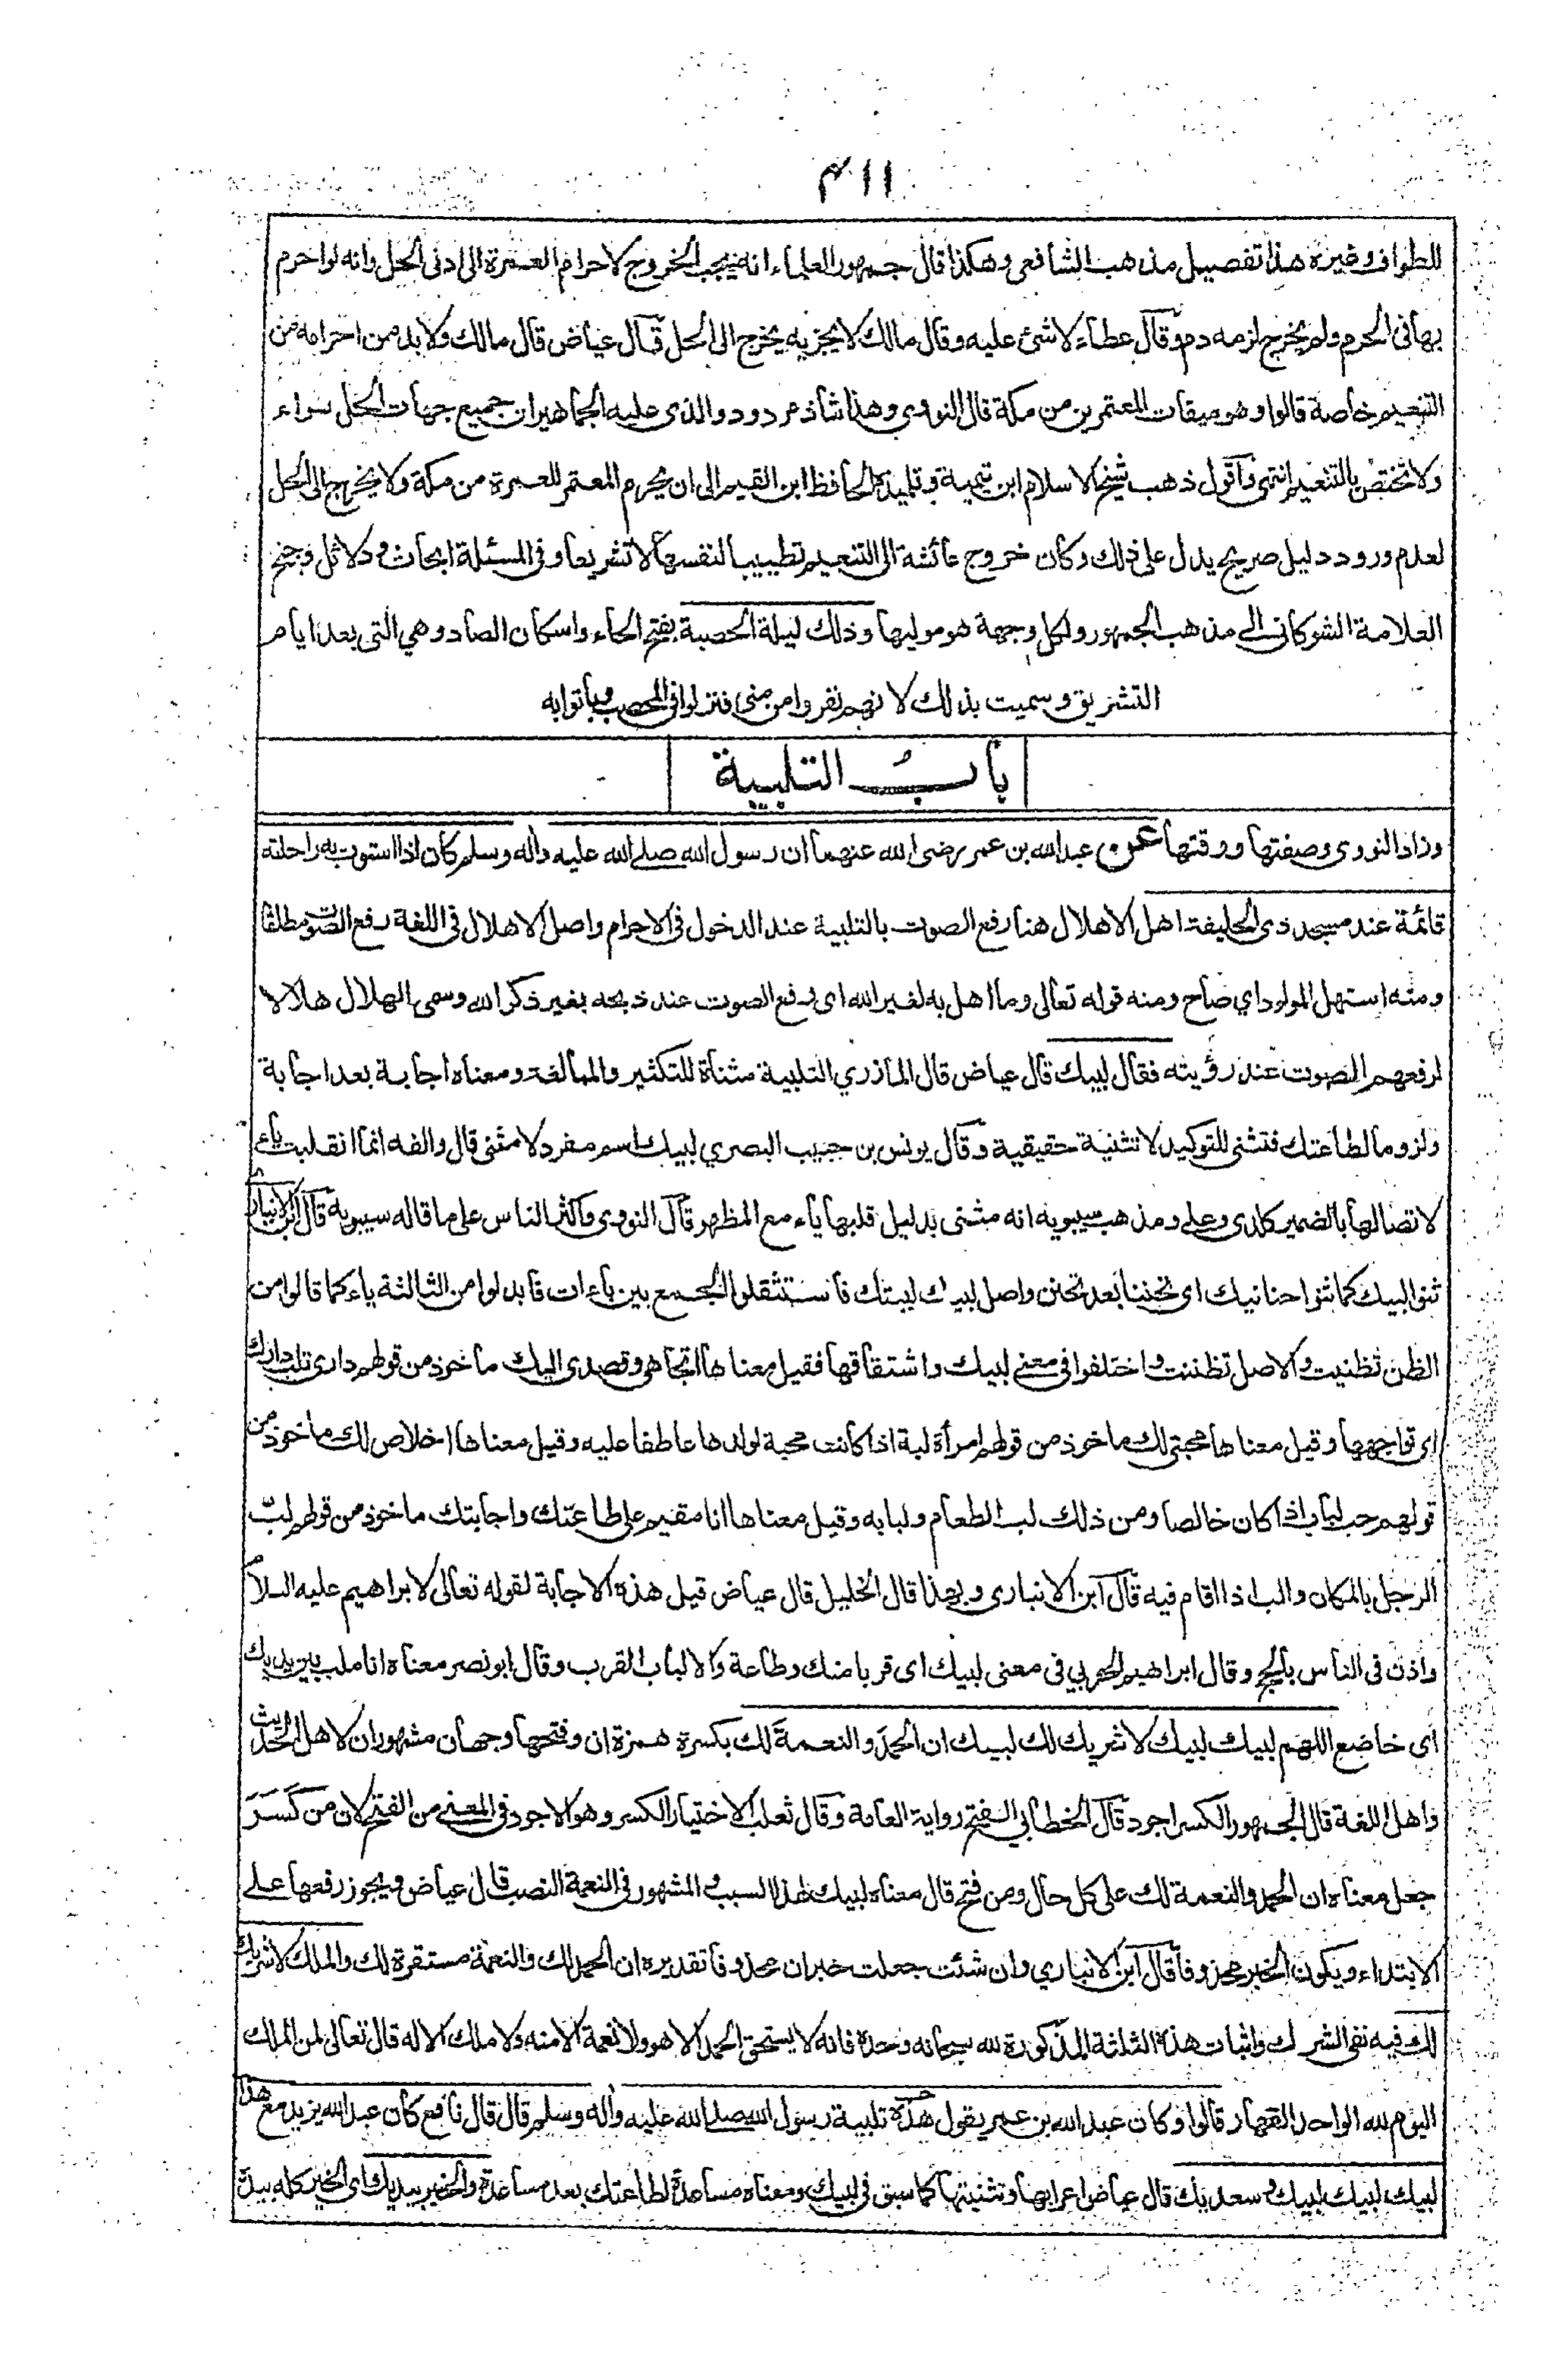 ١١٣
للطواف وغيره هذا تفصيل مذهب الشافعى وهكذا قال جمهور العلماء انه يجب الخروج لاحرام العمرة الى ادنى الحل وانه لو احرم
بها فى الحرم ولم يخرج لزمه دم وقال عطاء لا شئ عليه وقال مالك لا يجزيه يخرج الى الحل قال عياض قال مالك ولا بد من احرامه من
التنعيم خاصة قالوا وهو ميقات المعتمرين من مكة قال النووى وهذا شاذ مردود والذى عليه الجماهير ان جميع جهات الحل سواء
ولا تختص بالتنعيم انتهى واقول ذهب شيخ الاسلام ابن تيمية وتلميذه الحافظ ابن القيم الى ان يحرم المعتمر للعمرة من مكة ولا يخرج الى الحل
لعدم ورود دليل صريح يدل على ذلك وكان خروج عائشة الى التنعيم تطييبا لنفسها لا تشريعا وفى المسئلة ابحاث و دلائل وجنح
العلامة الشوكانى الى مذهب الجمهور ولكل وجهة هو موليها وذلك ليلة الحصبة بفتح الحاء واسكان الصاد وهي التى بعد ايام
التشريق وسميت بذلك لانهم نفروا من منى فنزلوا فى المحصب وباتوا به
باب التلبية
وزاد النووى وصفتها ووقتها عن عبد الله بن عمر رضى الله عنهما ان رسول الله صلى الله عليه واله وسلم كان اذا استوت به راحلته
قائمة عند مسجد ذى الحليفة اهل الاهلال هنا رفع الصوت بالتلبية عند الدخول فى الاحرام واصل الاهلال فى اللغة رفع الصوت مطلقا
ومنه استهل المولود اي صاح ومنه قوله تعالى وما اهل به لغير الله اى رفع الصوت عند ذبحه بغير ذكر الله وسمى الهلال هلالا
لرفعهم الصوت عند رؤيته فقال لبيك قال عياض قال المازري التلبية مثناة للتكثير والمبالغة ومعناه اجابة بعد اجابة
ولزوما لطاعتك فتثنى للتوكيد لا تثنية حقيقية وقال يونس بن حبيب البصري لبيك اسم مفرد لا مثنى قال والفه انما انقلبت ياء
لاتصالها بالضمير كلدى وعلى ومذهب سيبويه انه مثنى بدليل قلبها ياء مع المظهر قال النووى واكثر الناس على ما قاله سيبويه قال ابن الانبارى
ثنوا لبيك كما ثنوا حنانيك اى تحننا بعد تحنن واصل لبيك لببتك فاستثقلوا الجمع بين باءات فابدلوا من الثالثة ياء كما قالوا من
الظن تظنيت والاصل تظننت واختلفوا فى معنى لبيك واشتقاقها فقيل معناها اتجاهى وقصدى اليك ماخوذ من قولهم دارى تلب دارك
اى تواجهها وقيل معناها محبتى لك ماخوذ من قولهم امرأة لبة اذا كانت محبة لولدها عاطفا عليه وقيل معناها اخلاص لك ماخوذ من
قولهم حب لباب اذا كان خالصا ومن ذلك لب الطعام ولبابه وقيل معناها انا مقيم على طاعتك واجابتك ماخوذ من قولهم لبّ
الرجل بالمكان والب اذا اقام فيه قال ابن الانبارى وبهذا قال الخليل قال عياض قيل هذه الاجابة لقوله تعالى لابراهيم عليه السلام
واذن فى الناس بالحج وقال ابراهيم الحربي فى معنى لبيك اى قربا منك وطاعة والالباب القرب وقال ابو نصر معناه انا ملب بين يديك
اى خاضع اللهم لبيك لبيك لا شريك لك لبيك ان الحمدَ والنعمةَ لك بكسرة همزة ان وفتحها وجهان مشهوران لاهل الحديث
واهل اللغة قال الجمهور الكسر اجود قال الخطابي الفتح رواية العامة وقال ثعلب الاختيار الكسر وهو الاجود فى المعنى من الفتح لان من كَسَرَ
جعل معناه ان الحمد والنعمة لك على كل حال ومن فتح قال معناه لبيك لهذا السبب و المشهور فى النعمة النصب قال عياض ويجوز رفعها على
الابتداء ويكون الخبر محذوفا قال ابن الانباري وان شئت جعلت خبر ان محذوفا تقديره ان الحمد لك والنعمة مستقرة لك والملك لا شريك
لك فيه نفى الشرك واثبات هذه الثلثة المذكورة لله سبحانه وحده فانه لا يستحق الحمد الا هو ولا نعمة الا منه ولا ملك الا له قال تعالى لمن الملك
اليوم لله الواحد القهار قالوا وكان عبد الله بن عمر يقول هذه تلبية رسول الله صلى الله عليه واله وسلم قال قال نافع كان عبد الله يزيد مع هذا
لبيك لبيك لبيك و سعديك قال عياض اعرابها وتثنيتها كما سبق فى لبيك ومعناه مساعدة لطاعتك بعد مساعدة والخير بيديك اى الخير كله بيد